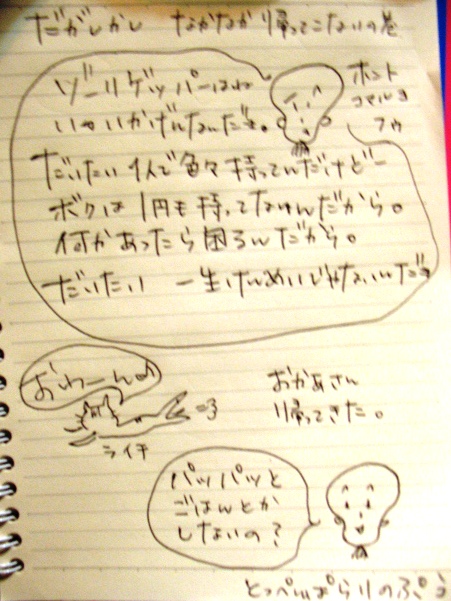 だがしかし なかなか帰ってこないの巻
ホント
コマルヨ
フゥ
ゾーリゲッパーはね
いいかげんなんだよ。
だいたい1人で色々持ってんだけど
ボクは1円も持ってなんだから。
何かあったら困るんだから。
だいたい 一生けんめいじゃないんだよ
おわーん
ライチ
おかあさん
帰ってきた。
パッパッと
ごはんとか
しないの?
とっぺんぱらりのぷう